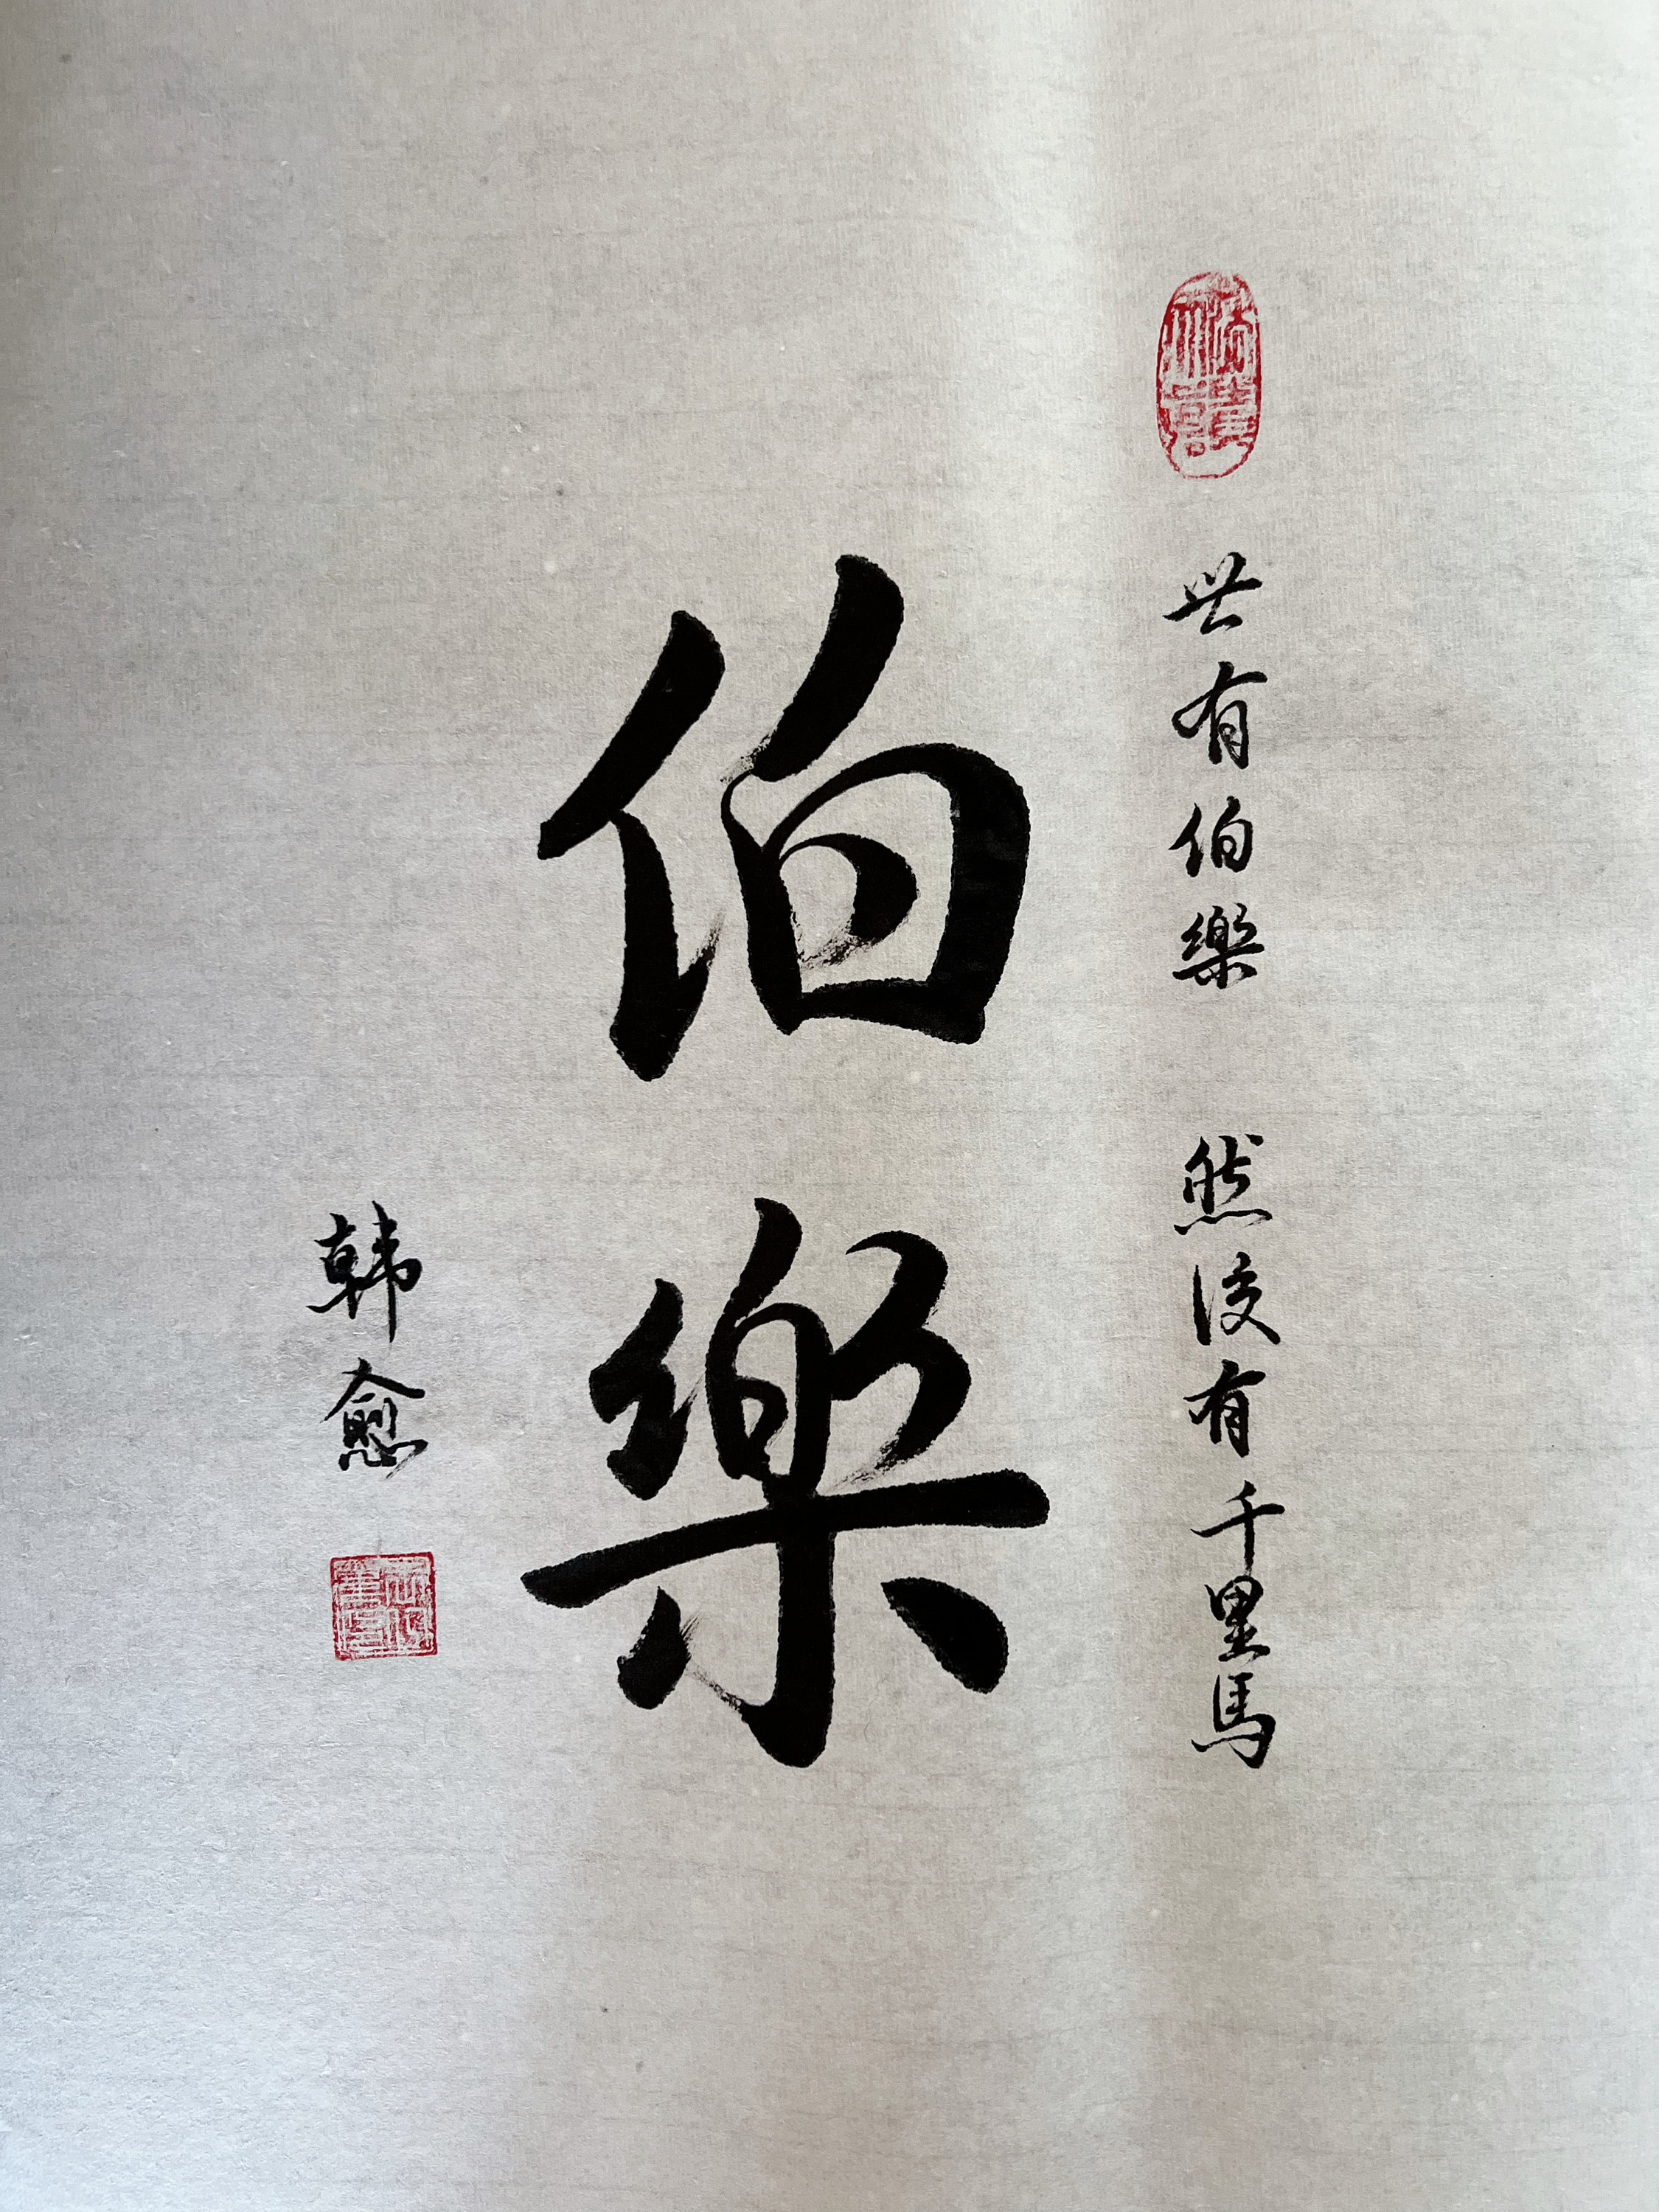 世有伯樂 然後有千里馬
伯樂
韩愈